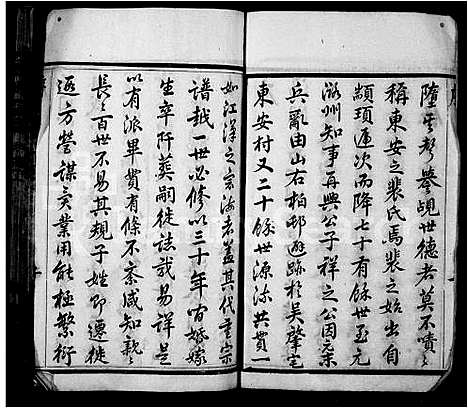 墮其聲譽覘世德者莫不嘖嘖
稱東安之裴氏焉裴之始出自
顓頊遞次而降七十有餘世至元
潞州知事再興公子祥之公因宋
兵亂由山右柏邨避跡於吳肇宅
東安村又二十餘世源流共貫一
如江漢之宗海者蓋其代重宗
譜越一世必修以三十年內婚嫁
生卒阡葬嗣徙誌哉易詳是
以有派畢貫有條不紊咸知親親
長長百世不易其規子姓即遷徙
遐方營謀異業用能極繁衍